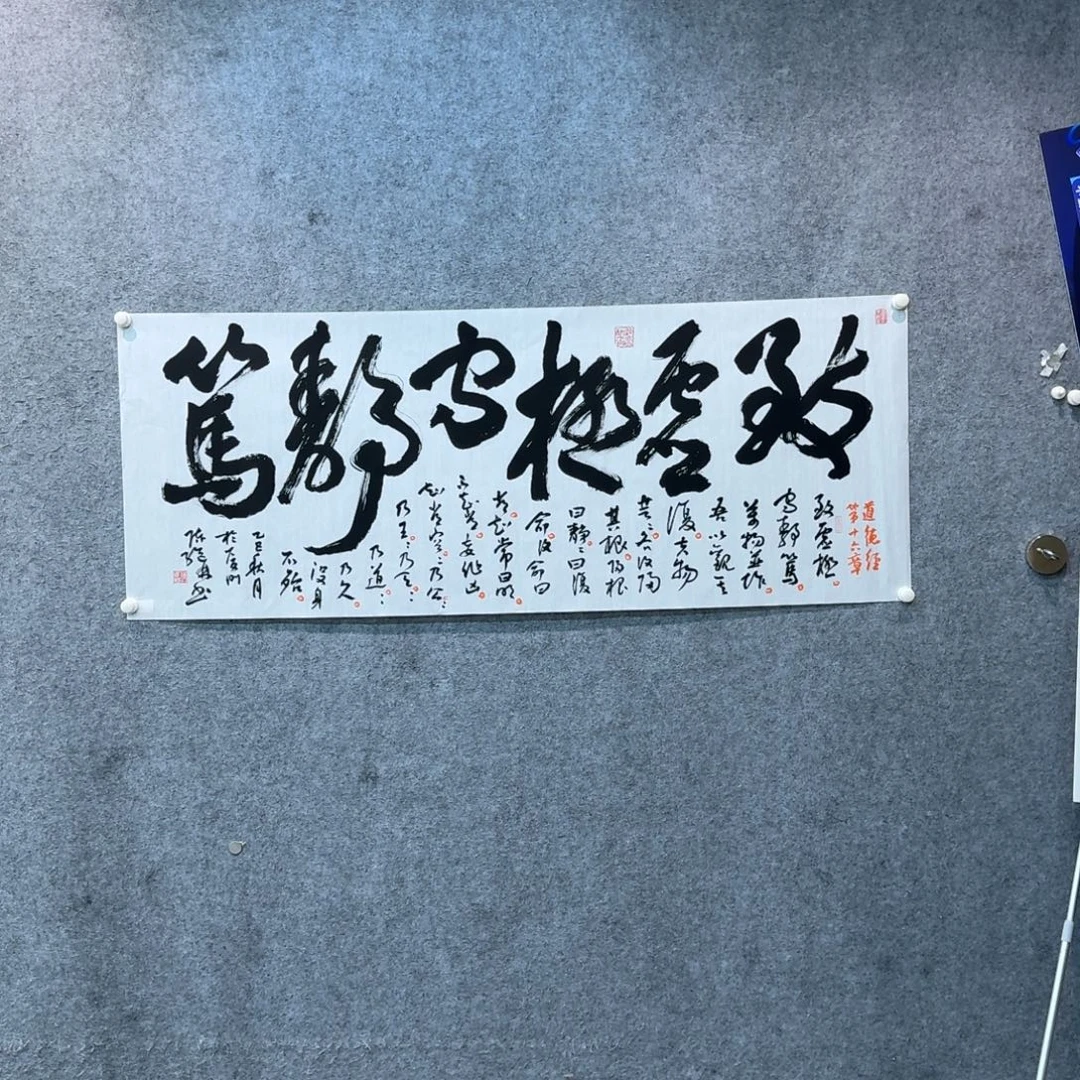 致虚極守靜篤
道德經
第十六章
致虚極。
守靜篤。
萬物並作。
吾以觀其
復。夫物
芸〻各復歸
其根。歸根
曰靜〻曰復
命。復命曰
常。知常曰明。
不知常。妄作凶。
知常容。〻乃公〻
乃王。〻乃天。〻
乃道〻
乃久。
没身
不殆。
乙巳秋月
於厦門